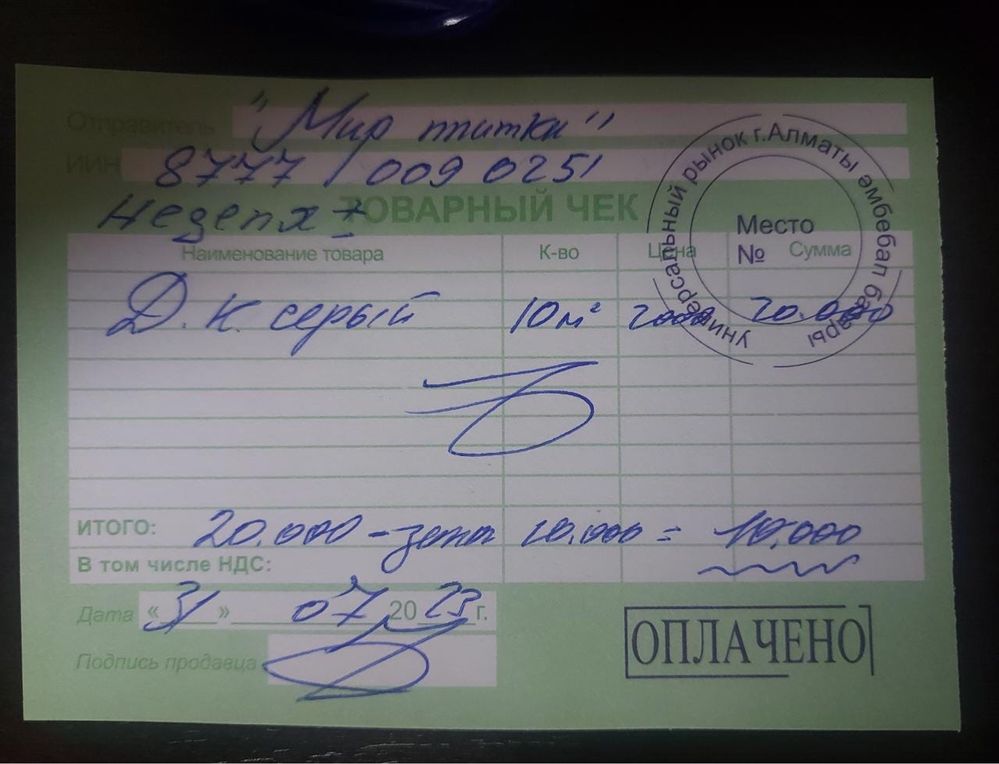 Отправитель "Мир плитки"
ИИН 8777 009 0251
ТОВАРНЫЙ ЧЕК
Наименование товара К-во Цена Сумма
Д.К. серый 10м² 2000 20.000
ИТОГО: 20.000 - 10.000 = 10.000
В том числе НДС:
Дата «31» 07 2023 г.
Подпись продавца
Универсальный рынок г.Алматы әмбебап базары
Место
№
ОПЛАЧЕНО